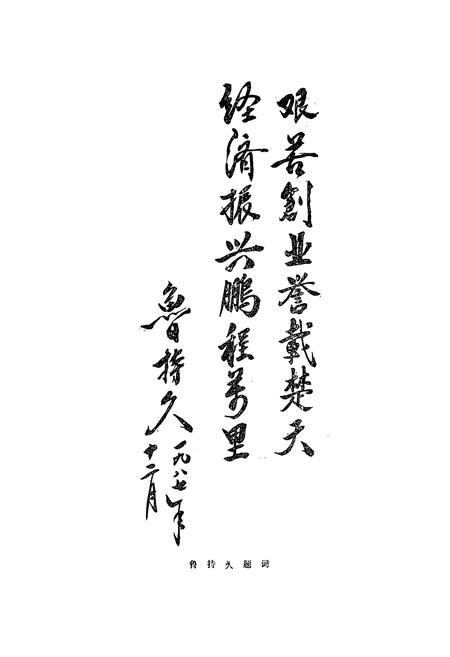 艰苦創业誉載楚天
经济振兴鹏程万里
魯持久
一九八七年
十二月
鲁持久题词